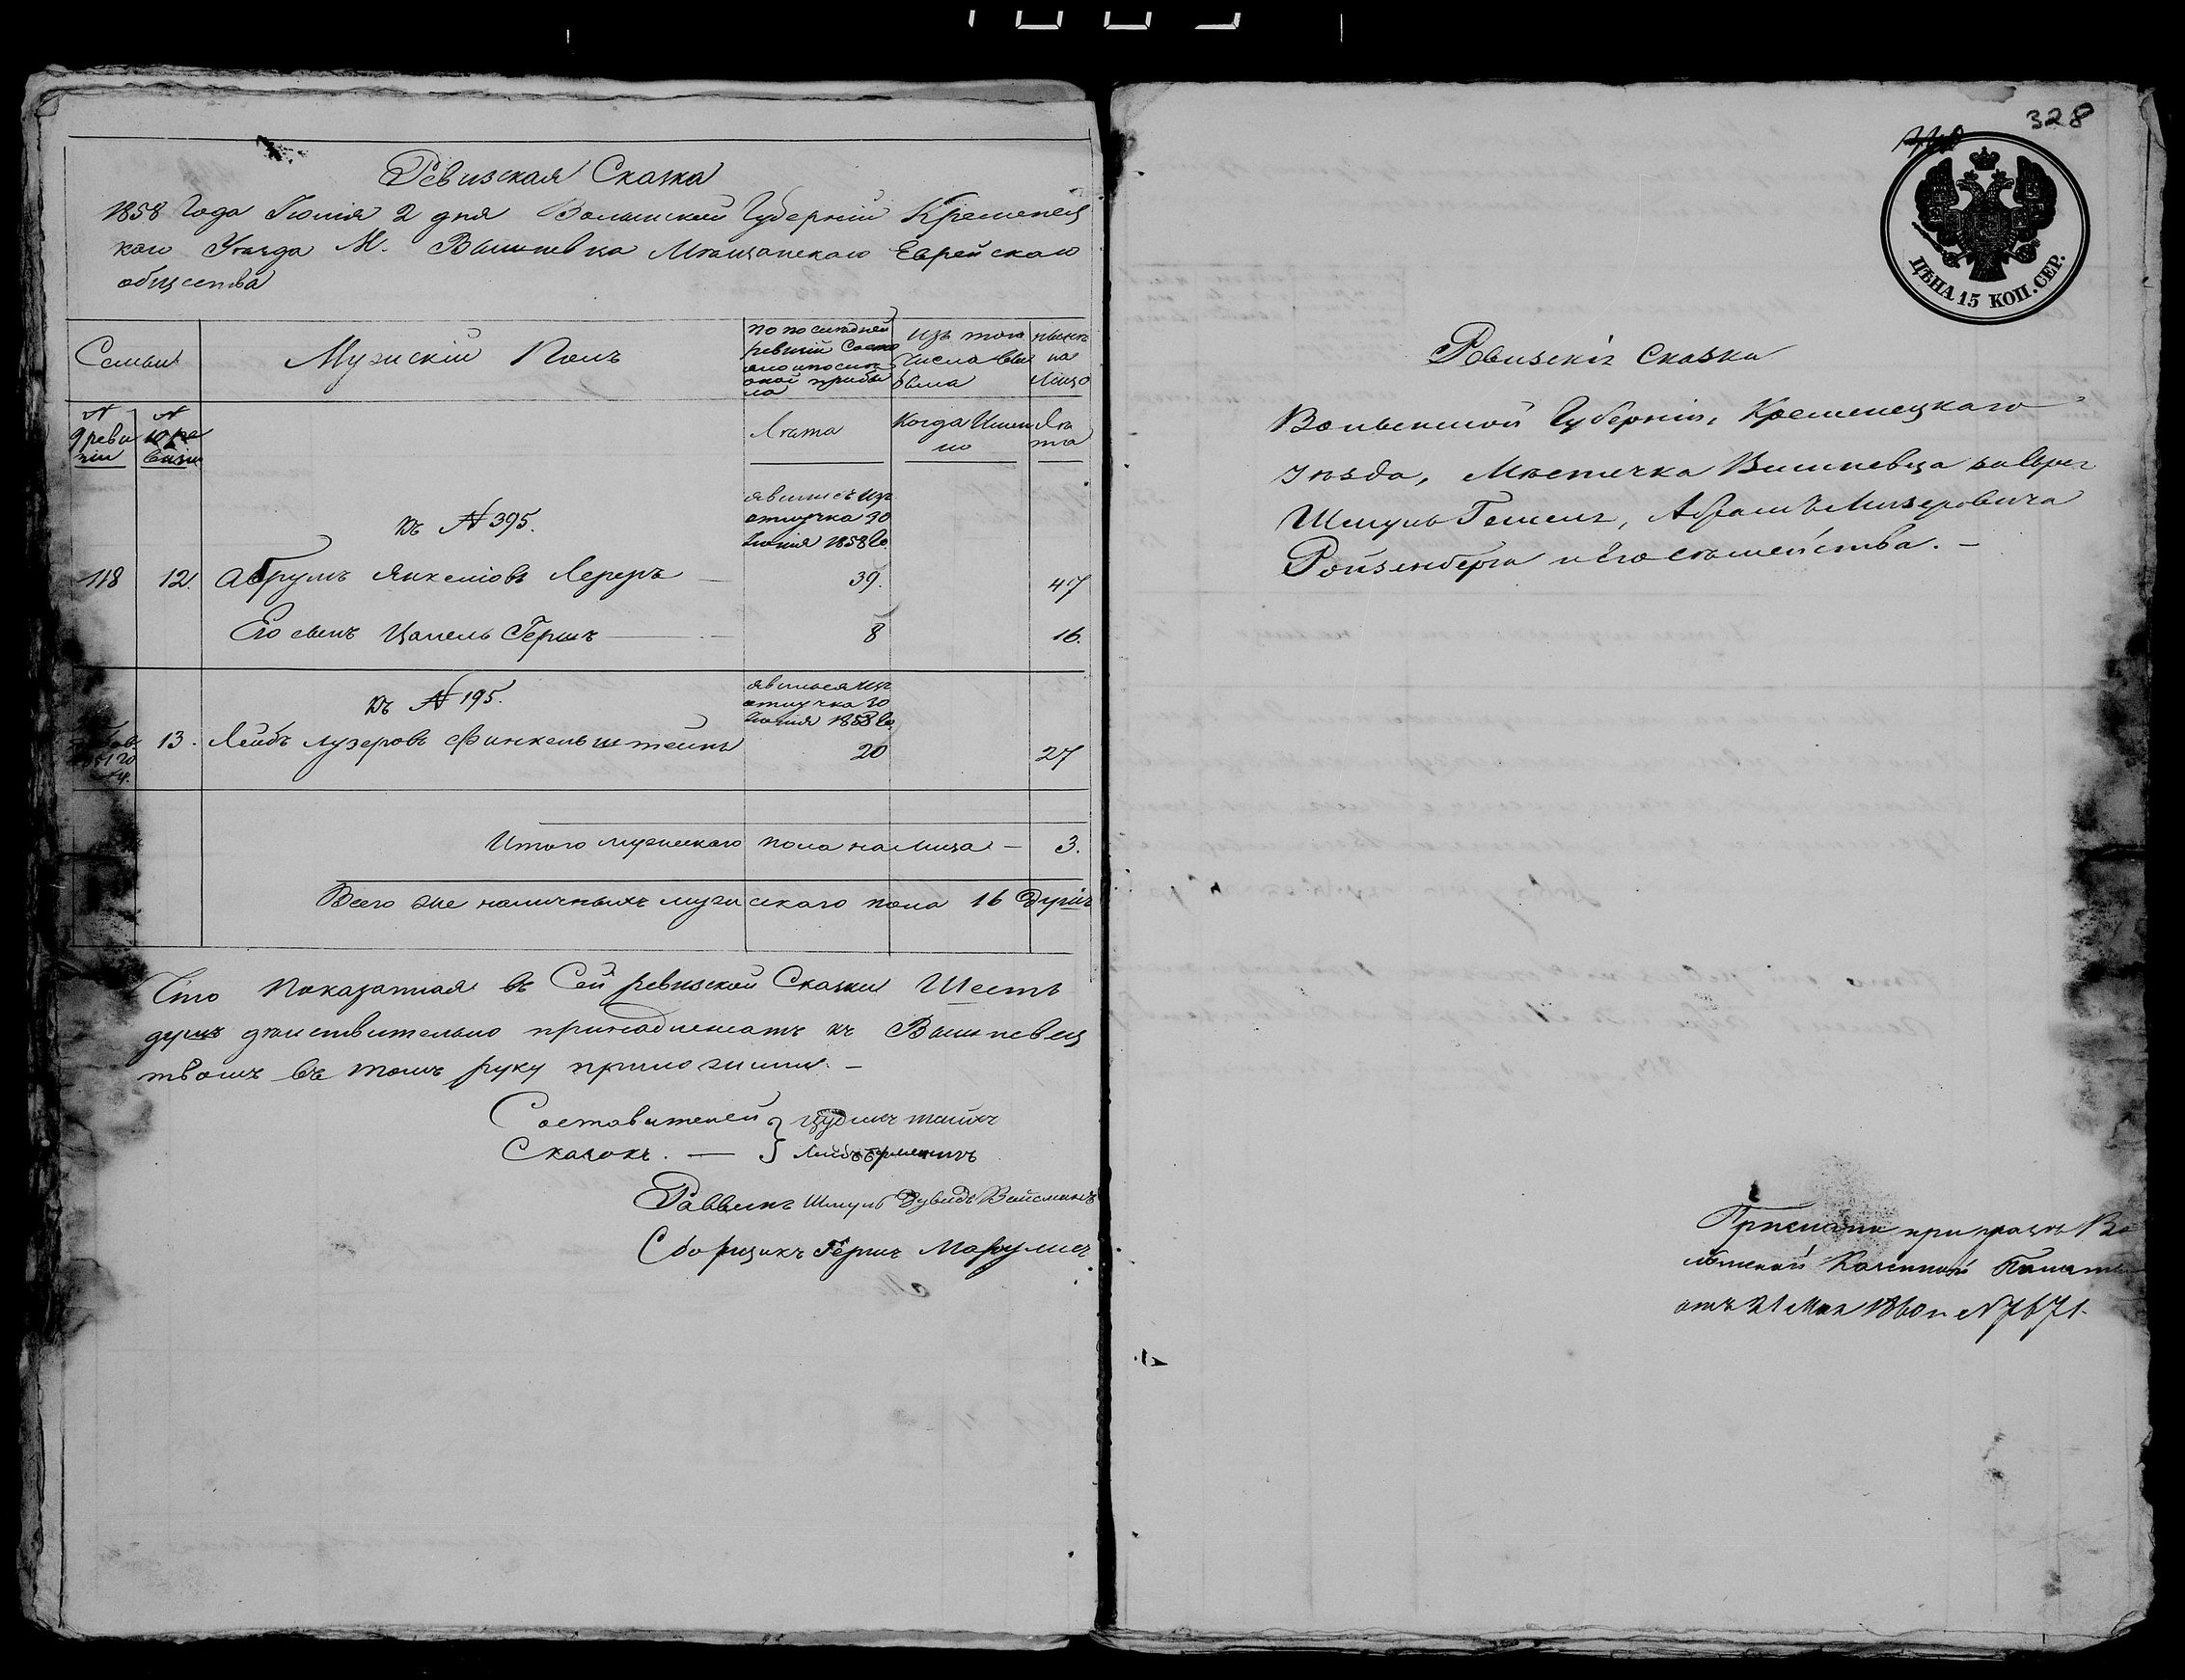 Ревизская Сказка
1858 Года Іюлія 2 дня Волынской Губерніи Кременец
каго Уезда М. Вишневца Мещанского Еврейскаго
общества
Семьи
Мужскій Полъ
по последней
ревизіи состо
яло и после
оной прибы
ло
Изъ того
числа вы
было
ныне
на
лицо
N
9 реви
зіи
N
10 ре
визіи
Лета
Когда Имен
но
Ле
та
къ N 395.
явились изъ
отлучка 30
Іюнія 1858 го.
118 12. Абрумъ Янкелювъ Лереръ — 39. 47
Его сынъ Цалель Гершъ — 8 16.
къ N 195.
явился изъ
отлучка 30
Іюнія 1858 го
13. Лейбъ Лузеровъ Финкельштейнъ 20 27
Итого мужескаго пола на лицо — 3.
Всего же наличныхъ мужескаго пола 16 душъ
Что показанная въ Сей ревизской Сказки Шесть
душъ действительно принадлежатъ къ Вишневец
въ томъ руку приложили. —
Составителей }
Сказокъ. — } Лейбъ
Раввинъ Шмуль Дувидъ Вайсманъ
Сборщикъ Гершъ Маргулисъ
328
ЦѢНА 15 КОП. СЕР.
Ревизскія сказка
Волынской Губерніи, Кременецкаго
Уезда, Местечка Вишневца еврея
Шмуль Абрамъ Лизеровича
Ройзенберга и его семейства. —
При указе Во
лынской Казенной Палаты
отъ 21 Мая 1860 г. N 7671.